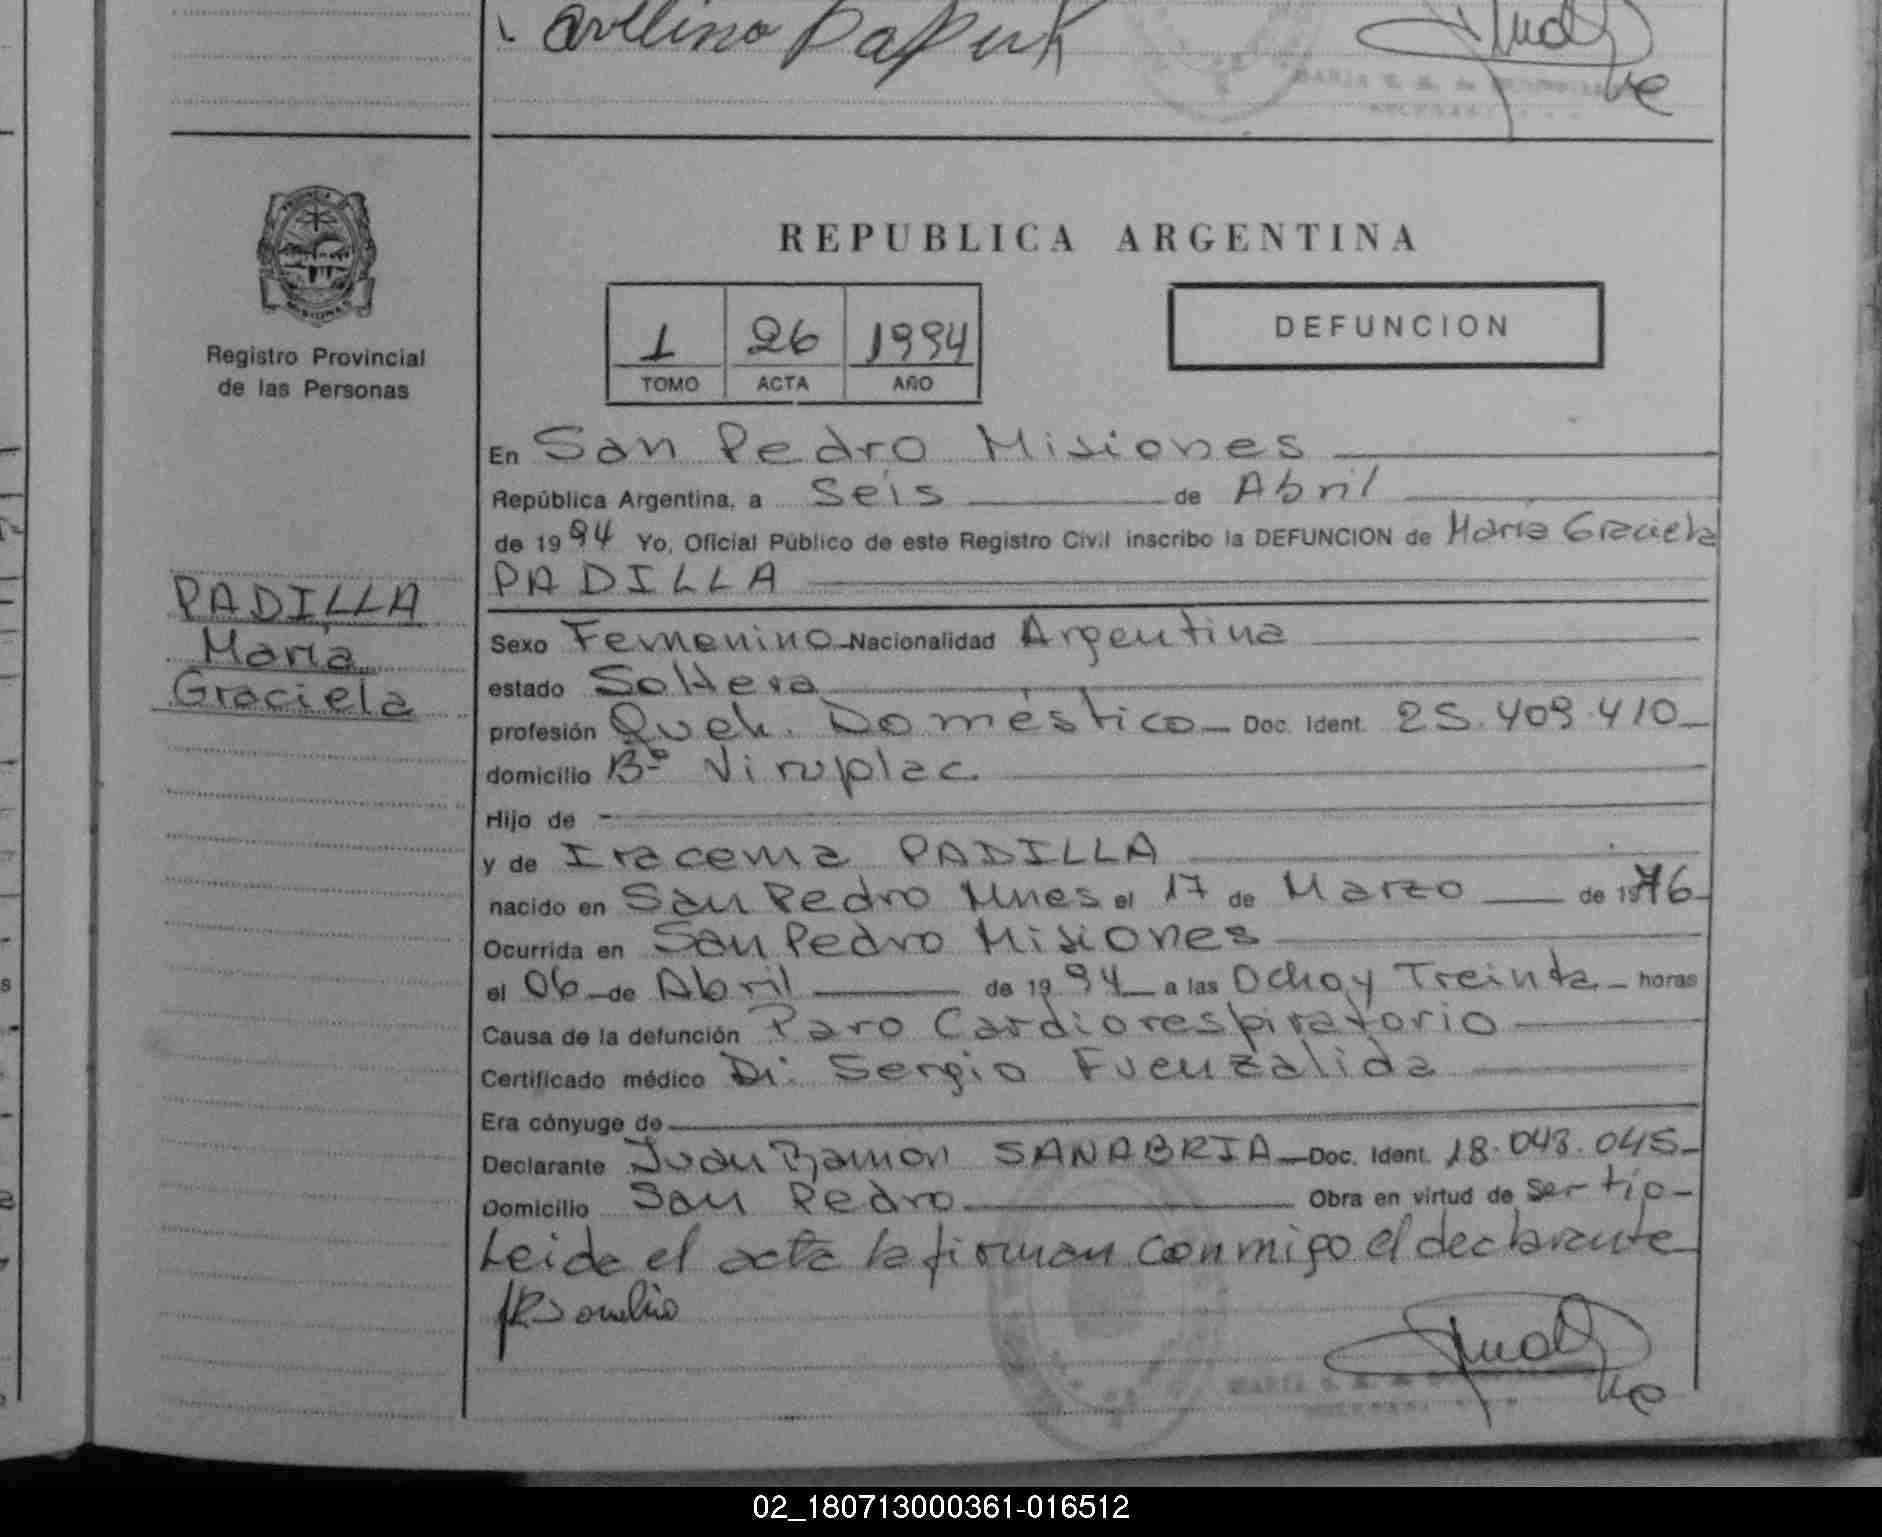 Avelino
REPUBLICA ARGENTINA
1 26 1994
TOMO ACTA AÑO
DEFUNCION
Registro Provincial
de las Personas
PADILLA
María
Graciela
En San Pedro Misiones
República Argentina, a Seis de Abril
de 1994 Yo, Oficial Público de este Registro Civil inscribo la DEFUNCION de María Graciela
PADILLA
Sexo Femenino Nacionalidad Argentina
estado Soltera
profesión Queh. Doméstico Doc. Ident. 25.409.410
domicilio Bº Viruplac
Hijo de
y de Iracema PADILLA
nacido en San Pedro Mnes el 17 de Marzo de 1976
Ocurrida en San Pedro Misiones
el 06 de Abril de 1994 a las Ocho y Treinta horas
Causa de la defunción Paro Cardiorespiratorio
Certificado médico Dr. Sergio Fuenzalida
Era cónyuge de
Declarante Juan Ramon SANABRIA Doc. Ident. 18.043.045
Domicilio San Pedro Obra en virtud de ser tio
Leida el acta la firman conmigo el declarante
02_180713000361-016512